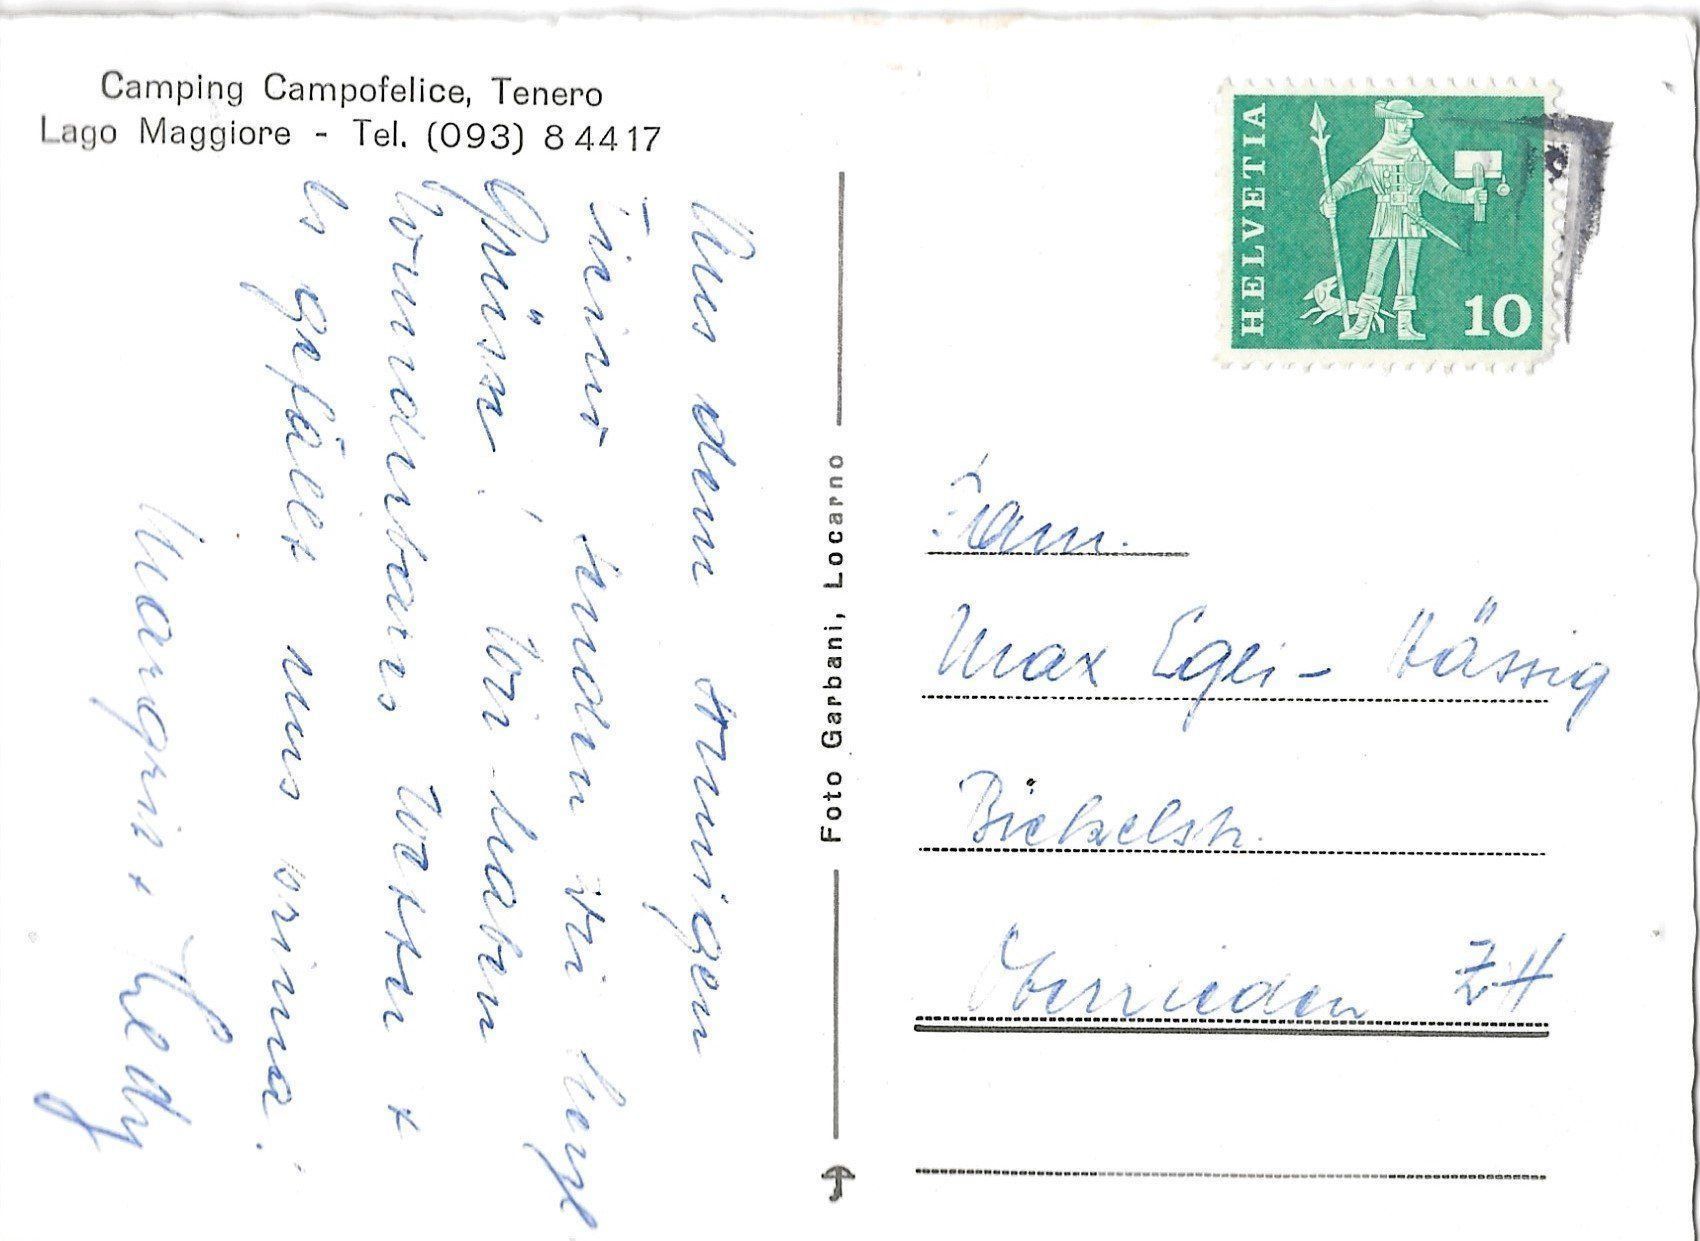 Camping Campofelice, Tenero
Lago Maggiore - Tel. (093) 8 44 17
Aus dem sonnigen
Tessin senden wir herzl.
Grüsse! Wir haben
wunderbares Wetter +
es gefällt uns prima!
Margrit + Hedy
Foto Garbani, Locarno
HELVETIA
10
Fam.
Max Egli - Hässig
Bickelstr.
Oberrieden ZH